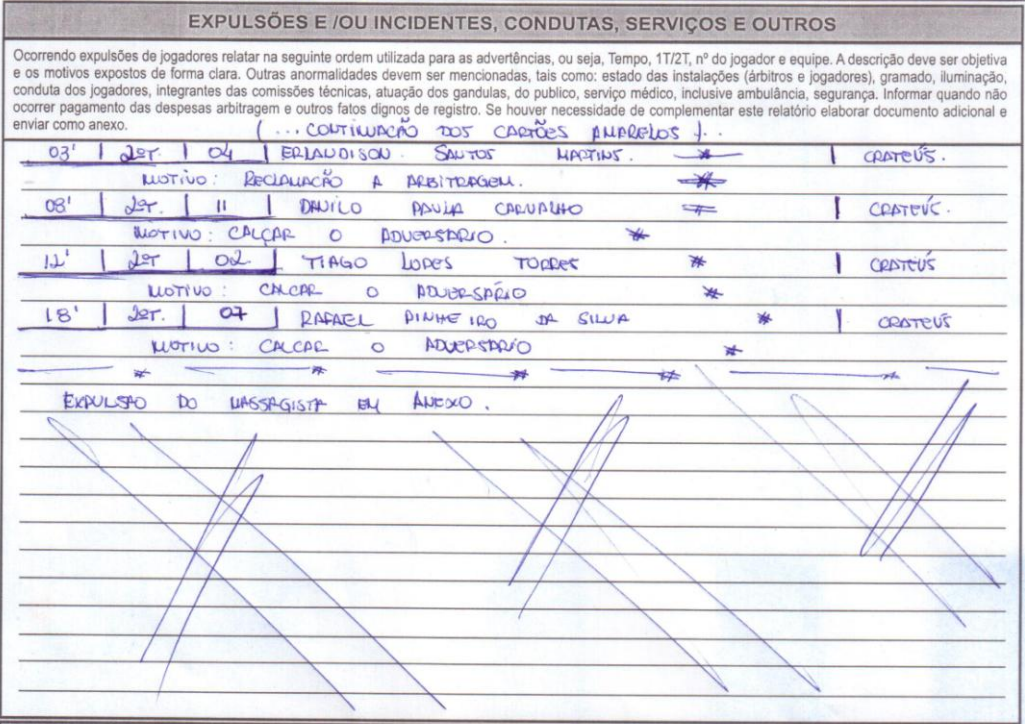 EXPULSÕES E /OU INCIDENTES, CONDUTAS, SERVIÇOS E OUTROS
Ocorrendo expulsões de jogadores relatar na seguinte ordem utilizada para as advertências, ou seja, Tempo, 1T/2T, nº do jogador e equipe. A descrição deve ser objetiva
e os motivos expostos de forma clara. Outras anormalidades devem ser mencionadas, tais como: estado das instalações (árbitros e jogadores), gramado, iluminação,
conduta dos jogadores, integrantes das comissões técnicas, atuação dos gandulas, do publico, serviço médico, inclusive ambulância, segurança. Informar quando não
ocorrer pagamento das despesas arbitragem e outros fatos dignos de registro. Se houver necessidade de complementar este relatório elaborar documento adicional e
enviar como anexo.
(... CONTINUAÇÃO DOS CARTÕES AMARELOS )..
03' | 2ºT. | 04 | ERLANDISON. SANTOS MARTINS. | CRATEÚS.
MOTIVO: RECLAMAÇÃO A ARBITRAGEM.
08' | 2ºT. | 11 | DANILO PAULA CARVALHO | CRATEÚS.
MOTIVO: CALÇAR O ADVERSÁRIO.
12' | 2ºT | 02. | TIAGO LOPES TORRES | CRATEÚS
MOTIVO: CALCAR O ADVERSÁRIO
18' | 2ºT. | 07 | RAFAEL PINHEIRO DA SILVA | CRATEÚS
MOTIVO: CALCAR O ADVERSÁRIO
EXPULSÃO DO MASSAGISTA EM ANEXO.